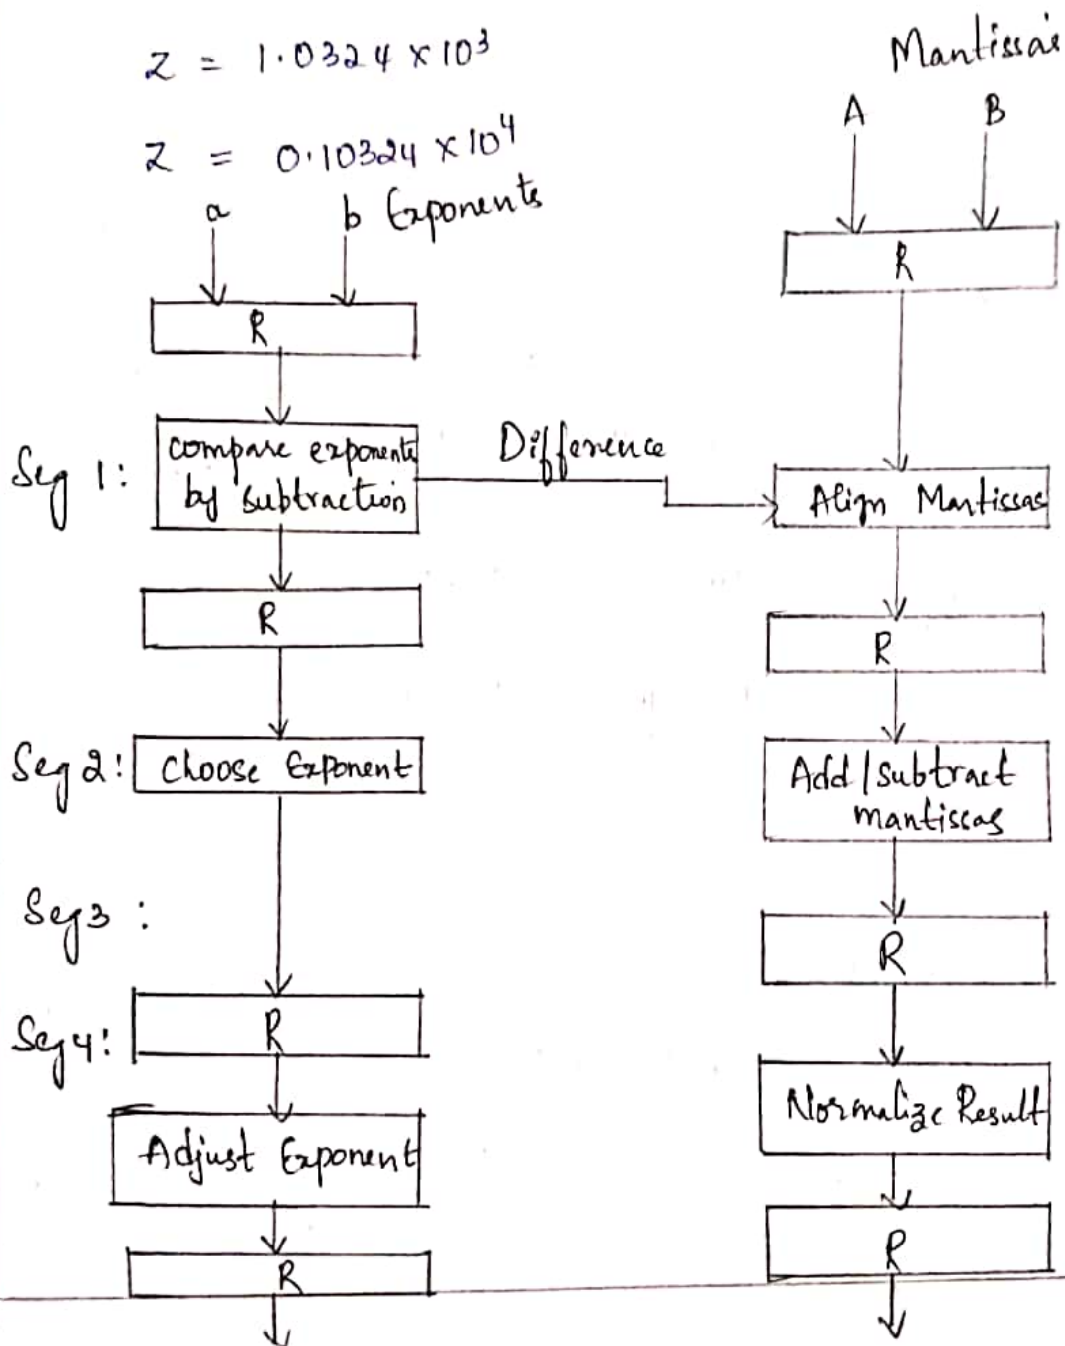 z = 1.0324 × 10³
z = 0.10324 × 10⁴
a b Exponents
R
Seg 1: compare exponents
by subtraction
Difference
R
Seg 2: Choose Exponent
Seg 3 :
R
Seg 4:
Adjust Exponent
R
Mantissa's
A B
R
Align Mantissas
R
Add / Subtract
mantissas
R
Normalize Result
R